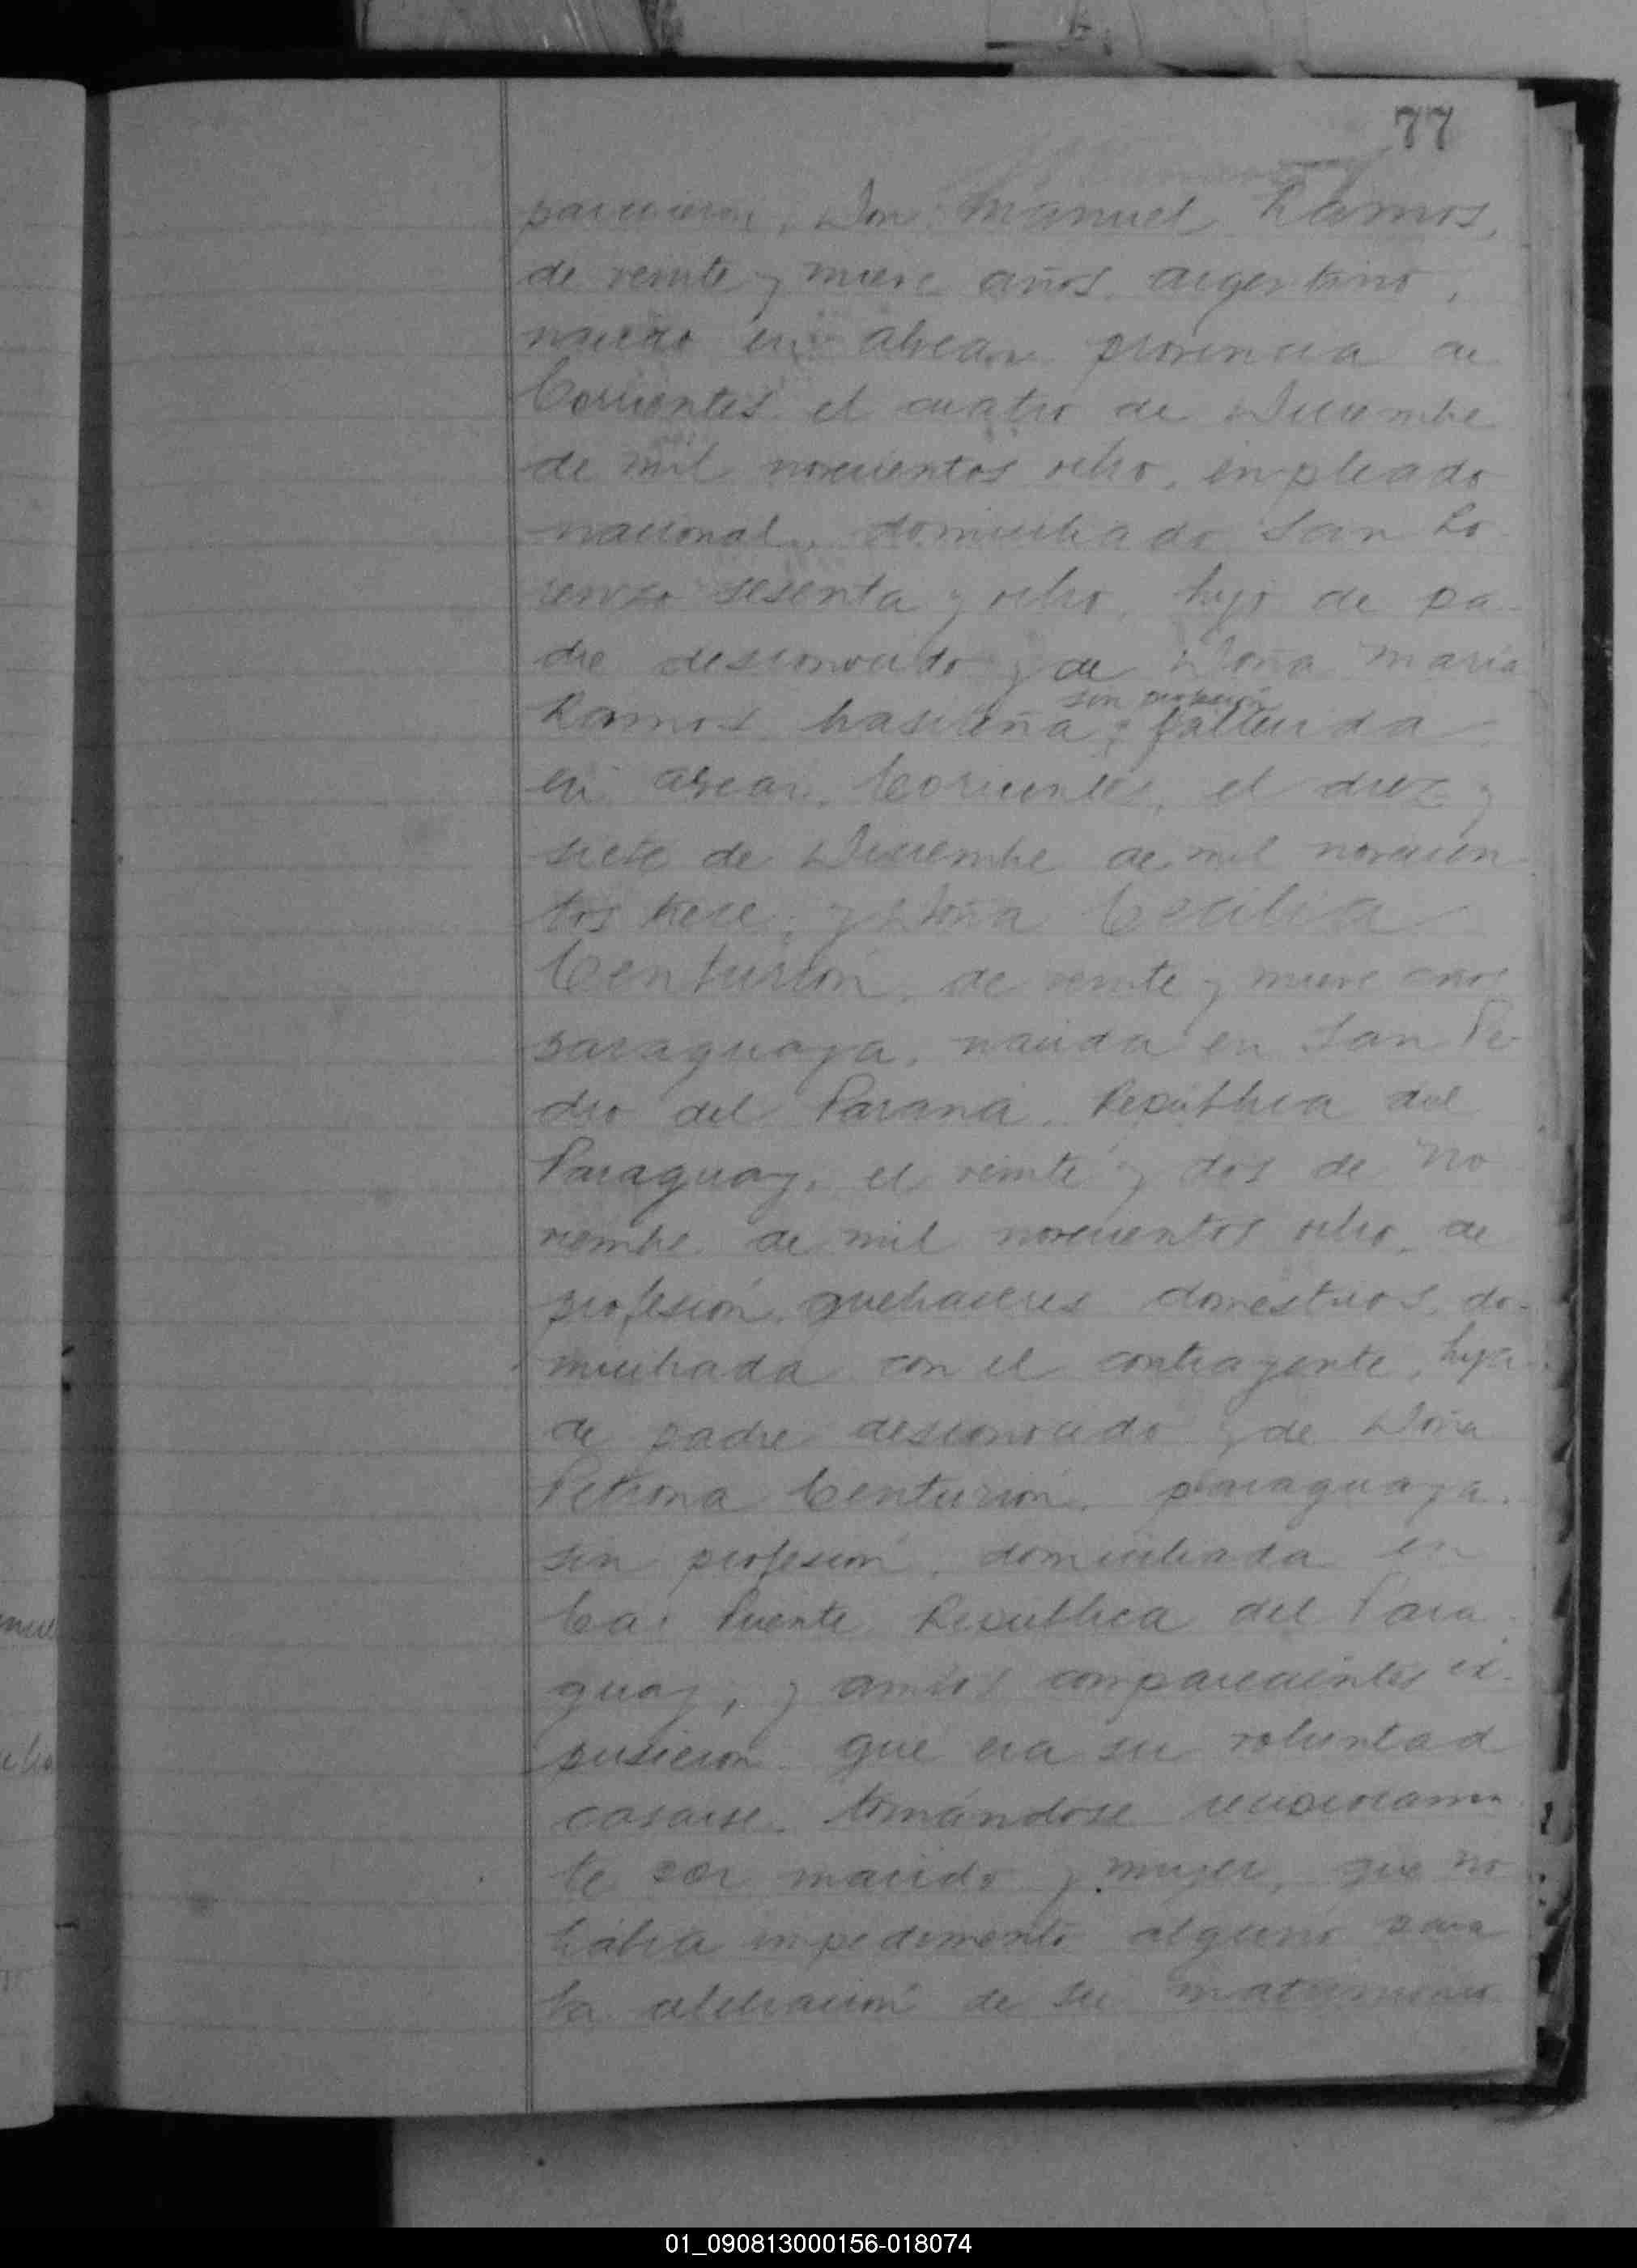 77
parecieron, Don Manuel Ramos,
de veinte y nueve años, argentino,
nacido en Alvear provincia de
Corrientes el cuatro de Diciembre
de mil novecientos ocho, empleado
nacional, domiciliado San Lo-
renzo sesenta y ocho, hijo de pa-
dre desconocido y de Doña Maria
sin profesión
Ramos brasileña y fallecida
en Alvear, Corrientes, el diez y
siete de Diciembre de mil novecien-
tos trece, y Doña Cecilia
Centurión, de veinte y nueve años
paraguaya, nacida en San Pe-
dro del Paraná, República del
Paraguay, el veinte y dos de No
viembre de mil novecientos ocho, de
profesión quehaceres domésticos, do-
miciliada con el contrayente, hija
de padre desconocido y de Doña
Petrona Centurión, paraguaya,
sin profesión, domiciliada en
Puente República del Para
guay, y ambos comparecientes ex-
pusieron que era su voluntad
casarse tomándose recíprocamen
te por marido y mujer, que no
había impedimento alguno para
la celebración de su matrimonio
01_090813000156-018074